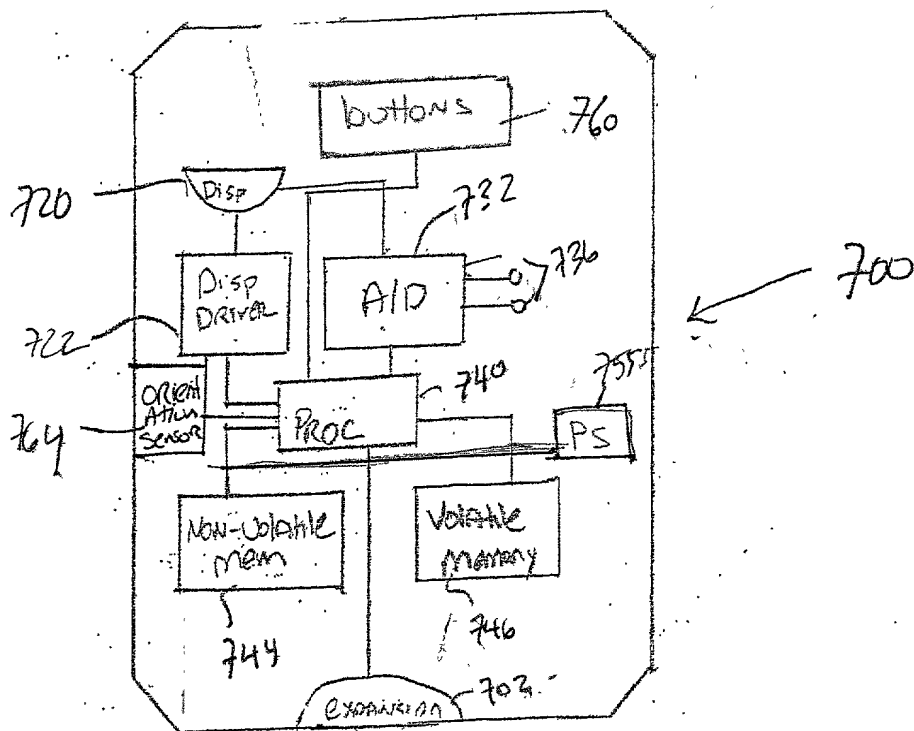 buttons
760
720
Disp
732
736
Disp
DRIVER
A/D
700
722
740
755
ORient
Ation
sensor
PROC
PS
764
NON-Volatile
mem
Volatile
memory
744
746
702
expansion